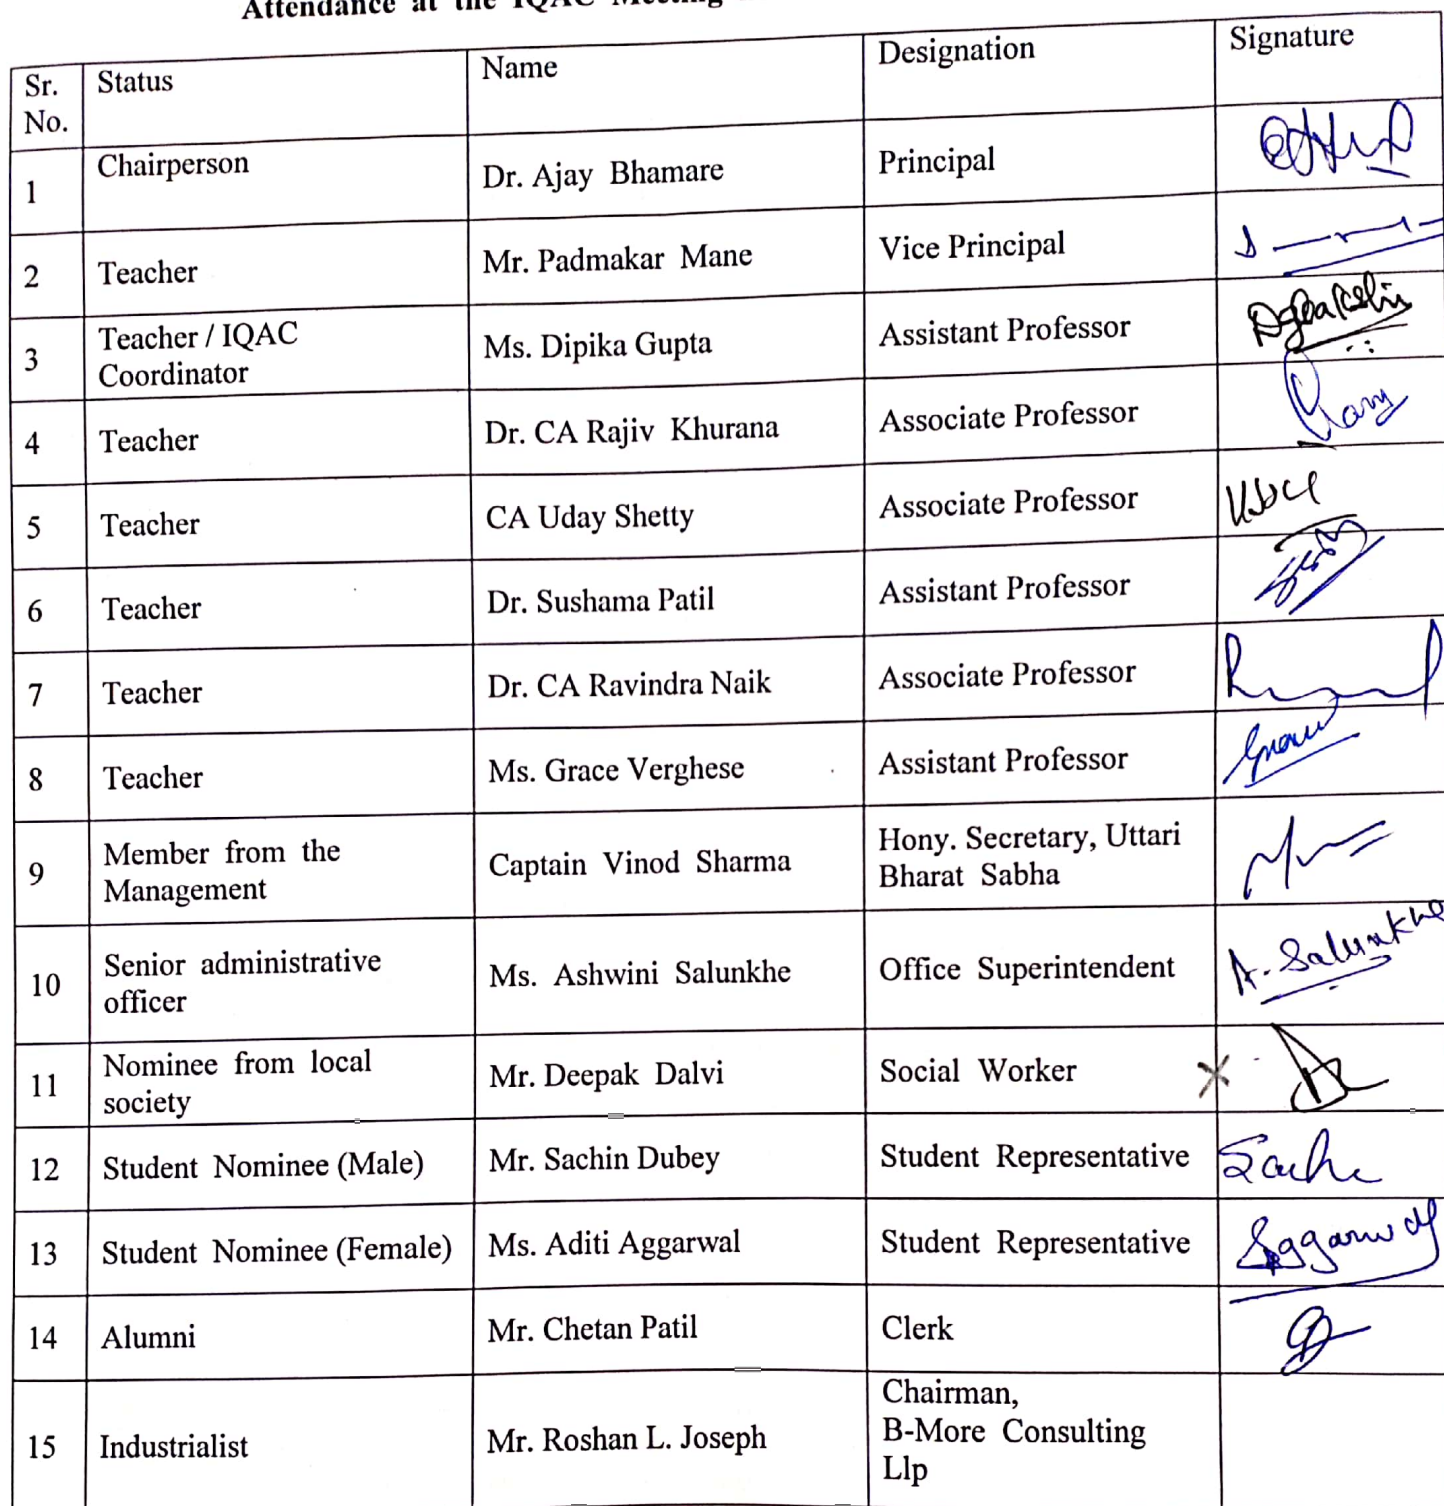 Attendance at the IQAC Meeting
Sr. No. Status Name Designation Signature
1 Chairperson Dr. Ajay Bhamare Principal
2 Teacher Mr. Padmakar Mane Vice Principal
3 Teacher / IQAC Coordinator Ms. Dipika Gupta Assistant Professor
4 Teacher Dr. CA Rajiv Khurana Associate Professor
5 Teacher CA Uday Shetty Associate Professor
6 Teacher Dr. Sushama Patil Assistant Professor
7 Teacher Dr. CA Ravindra Naik Associate Professor
8 Teacher Ms. Grace Verghese Assistant Professor
9 Member from the Management Captain Vinod Sharma Hony. Secretary, Uttari Bharat Sabha
10 Senior administrative officer Ms. Ashwini Salunkhe Office Superintendent A. Salunkhe
11 Nominee from local society Mr. Deepak Dalvi Social Worker
12 Student Nominee (Male) Mr. Sachin Dubey Student Representative
13 Student Nominee (Female) Ms. Aditi Aggarwal Student Representative Aggarwal
14 Alumni Mr. Chetan Patil Clerk
15 Industrialist Mr. Roshan L. Joseph Chairman, B-More Consulting Llp